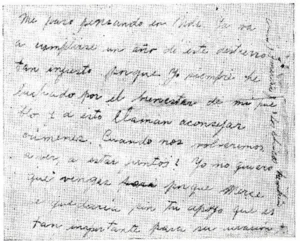 Me paso pensando en Uds. Ya va
a cumplirse un año de este destierro
tan injusto porque yo siempre he
luchado por el bienestar de mi pue
blo y a esto llaman aconsejar
crímenes. Cuando nos volveremos
a ver, a estar juntos! Yo no quiero
que vengas porque Merce
quedaría sin tu apoyo que es
tan importante para su